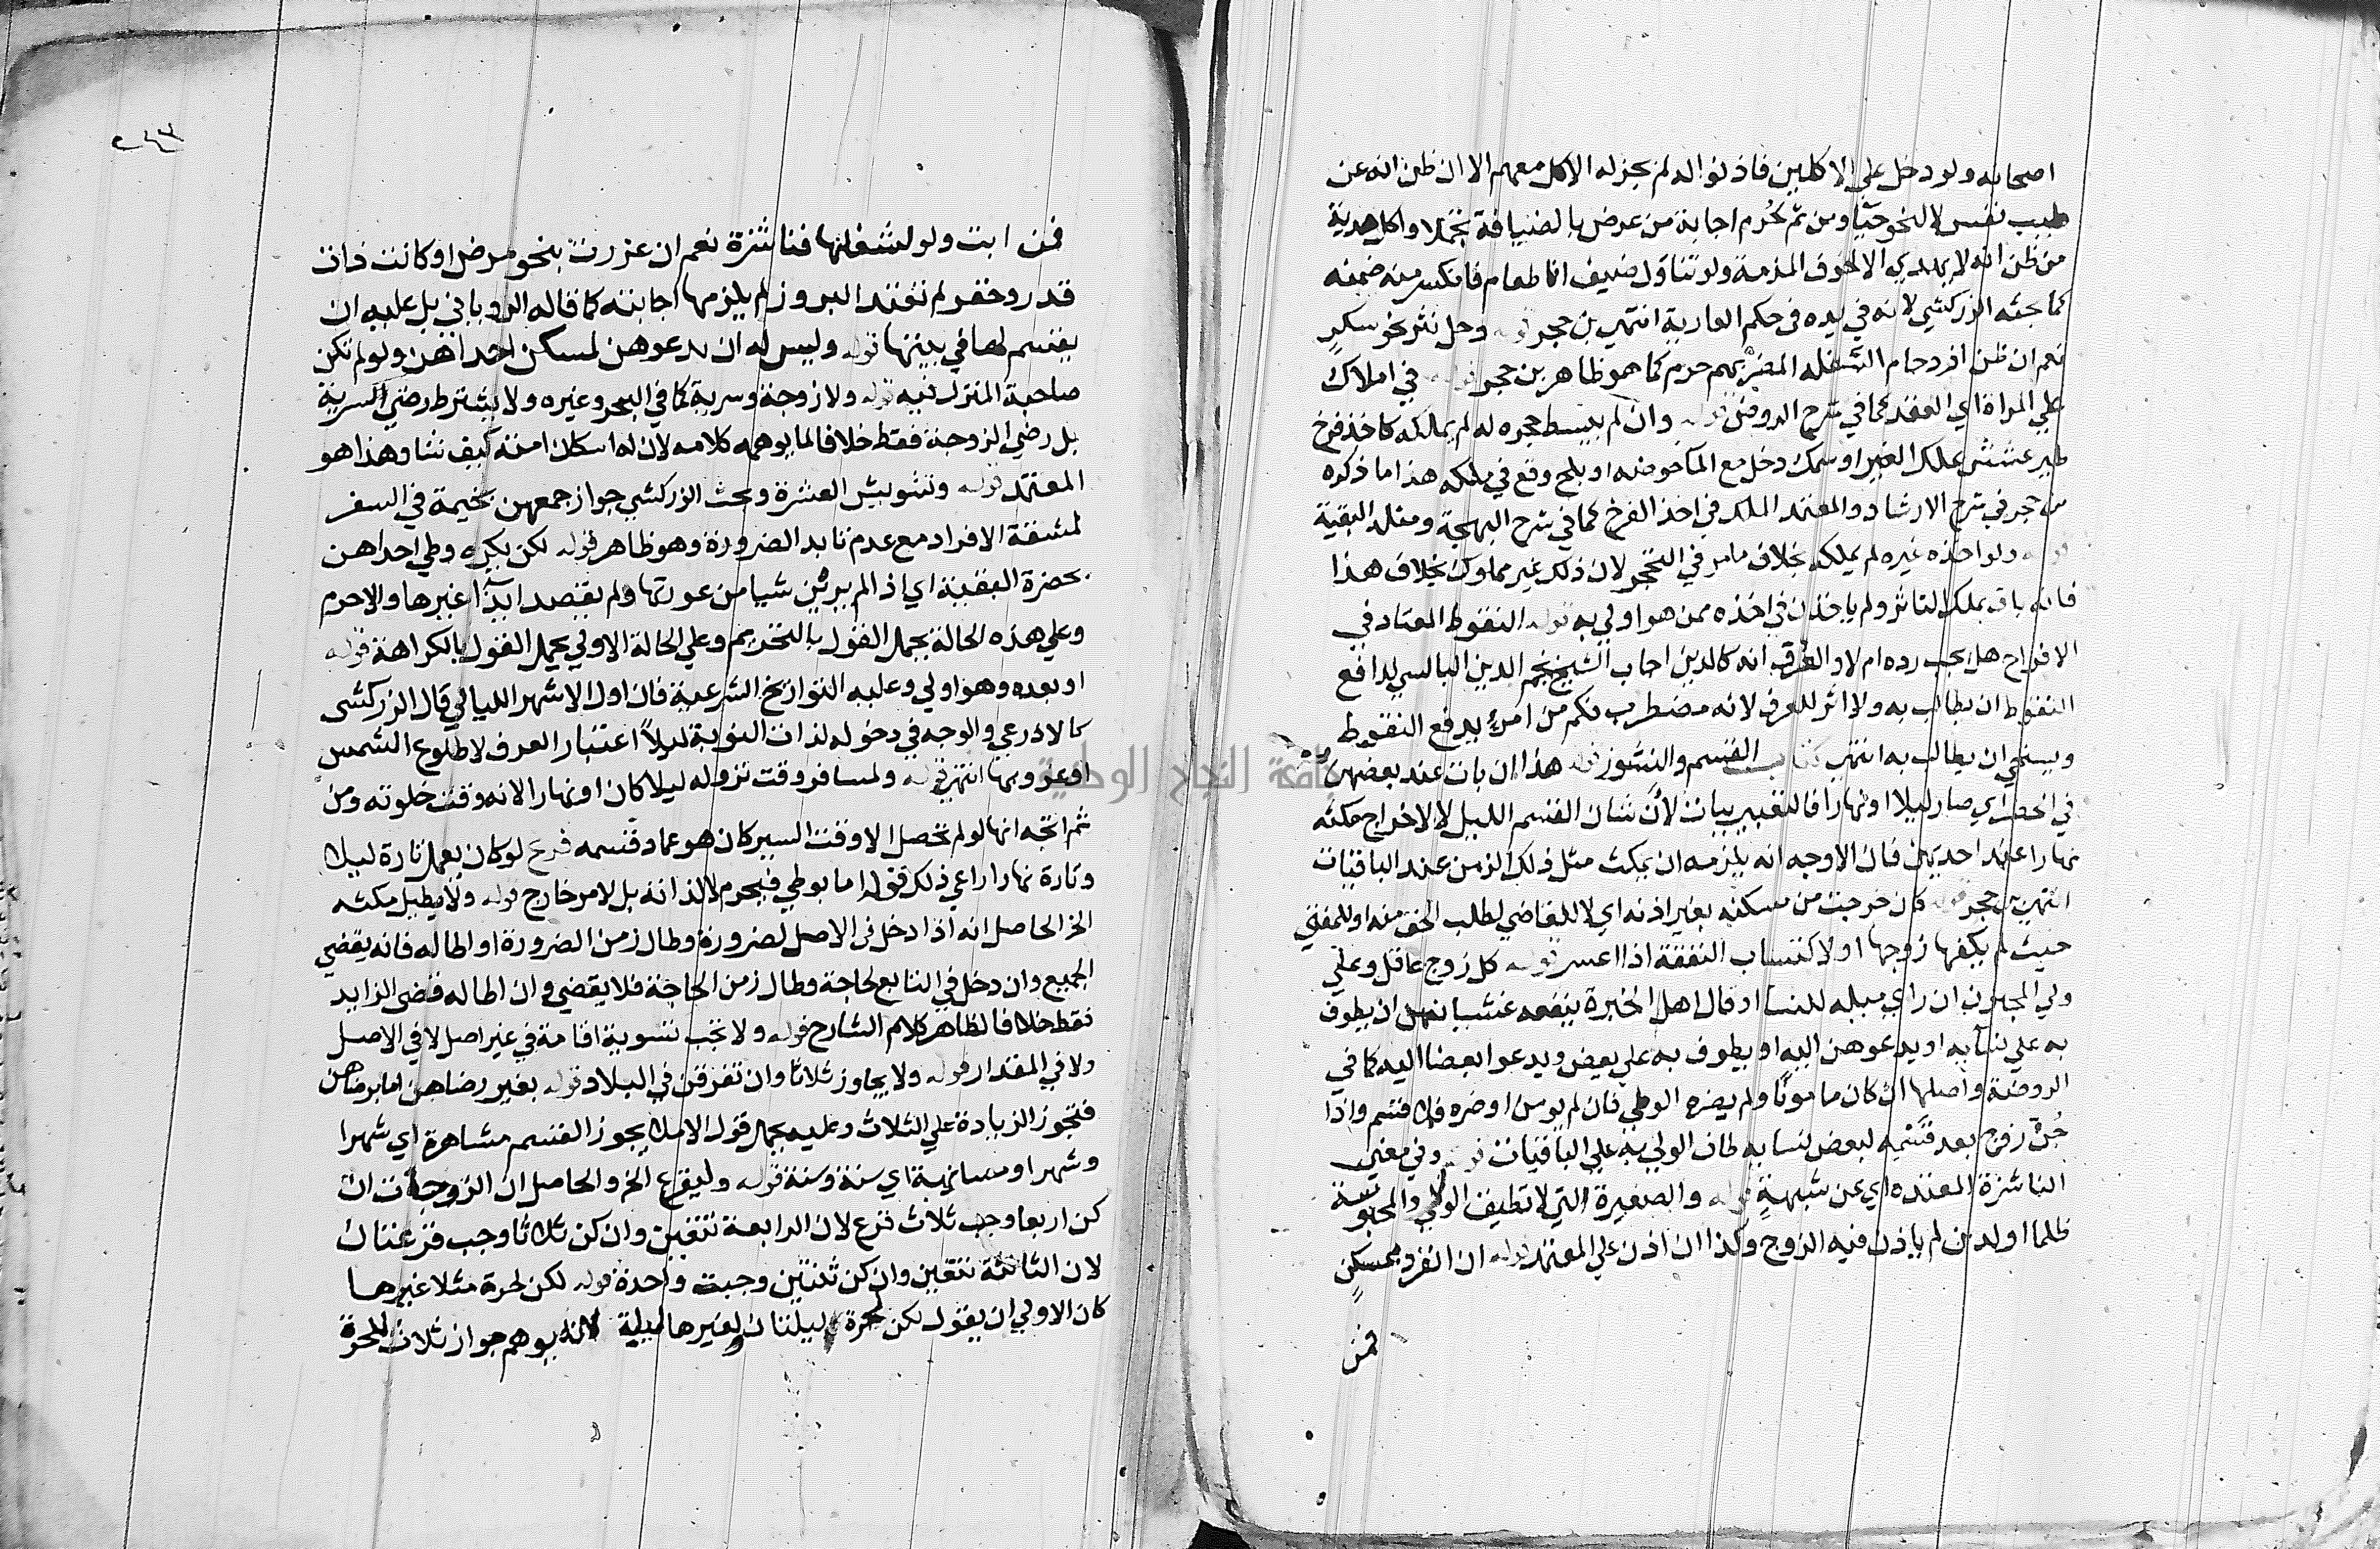 اصحابه ولو دخل علي الاكلين فاذنوا له لم يجز له الاكل معهم الا ان ظن انه عن
طيب نفس لا لنحو حيا ومن ثم تحرم اجابة من عرض بالضيافة تجملا واكل هدية
من ظن انه لا يهدي الا لخوف المذمة ولو تناول ضيف انا طعام فانكسر منه ضمنه
كما بحثه الزركشي لانه في يده في حكم العارية انتهي بن حجر قوله وحل نثر نحو سكر
نعم ان ظن ازدحام السفله المضر بهم حرم كما هو ظاهر بن حجر قوله في املاك
علي المراة اي العقد كما في شرح الروض قوله وان لم يبسط حجره له لم يملكه كاخذ فرخ
طير عشش بملك الغير او سمك دخل مع الما حوضه او بلح وقع في ملكه هذا ما ذكره
بن حجر في شرح الارشاد والمعتمد الملك في اخذ الفرخ كما في شرح البهجة ومثله البقية
قوله ولو اخذه غيره لم يملكه بخلاف ما مر في التحجر لان ذلك غير مملوك بخلاف هذا
فانه باق بملك الناثر ولم ياخذن في اخذه ممن هو اولي به قوله النقوط المعتاد في
الافراح هل يجب رده ام لا والعرف انه كالدين اجاب الشيخ نجم الدين البالسي لدافع
النقوط ان يطالب به ولا اثر للعرف لانه مضطرب فكم من امرئ يدفع النقوط
ويستحي ان يطالب به انتهي كتاب القسم والنشوز قوله هذا ان بات عند بعضهن
في الحضر اي صار ليلا او نهارا فالتعبير ببات لان شان القسم الليل لا لاخراج مكثه
نهارا عند احديهن فان الاوجه انه يلزمه ان يمكث مثل ذلك الزمن عند الباقيات
انتهي بن حجر قوله كان خرجت من مسكنه بغير اذنه اي لا للقاضي لطلب الحق منه او للمفتي
حيث لم يكفها زوجها او لاكتساب النفقة اذا اعسر قوله كل زوج عاقل وعلي
ولي المجنون ان راي ميله للنسا او قال اهل الخبرة ينفعه غشيانهن ان يطوف
به علي نسايه او يدعوهن اليه او يطوف به علي بعض ويدعو بعضا اليه كما في
الروضة واصلها ان كان مامونا ولم يضره الوطي فان لم يومن او ضره فلا قسم واذا
جن زوج بعد قسمه لبعض نسايه طاف الولي به علي الباقيات قوله وفي معني
الناشزة المعتده اي عن شبهة قوله والصغيرة التي لا تطيق الوطي والمحبوسة
ظلما او لدين لم ياذن فيه الزوج وكذا ان اذن علي المعتمد قوله ان انفرد بمسكن
فمن
٢٤٣
فمن ابت ولو لشغلها فناشزة نعم ان عذرت بنحو مرض او كانت ذات
قدر وخفر لم تعتد البروز لم يلزمها اجابته كما قاله الروياني بل عليه ان
يقسم لها في بيتها قوله وليس له ان يدعوهن لمسكن احداهن ولو لم تكن
صاحبة المنزل فيه قوله ولا زوجة وسرية كما في البحر وغيره ولا يشترط رضي السرية
بل رضي الزوجة فقط خلافا لما يوهمه كلامه لان له اسكان امته كيف شا وهذا هو
المعتمد قوله وتشويش العشرة وبحث الزركشي جواز جمعهن بخيمة في السفر
لمشقة الافراد مع عدم تابد الضرورة وهو ظاهر قوله لكن يكره وطي احداهن
بحضرة البقية اي اذا لم يرين شيا من عورتها ولم يقصد ايذا غيرها والا حرم
وعلي هذه الحالة يحمل القول بالتحريم وعلي الحالة الاولي يحمل القول بالكراهة قوله
او بعده وهو اولي وعليه التواريخ الشرعية فان اول الاشهر الليالي قال الزركشي
كالاذرعي والوجه في دخوله لذات النوبة ليلا اعتبار العرف لا طلوع الشمس
او غروبها انتهي قوله ولمسافر وقت نزوله ليلا كان او نهارا لانه وقت خلوته ومن
ثم اتجه انها لو لم تحصل الا وقت السير كان هو عماد قسمه فرع لو كان يعمل تارة ليلا
وتارة نهارا راعي ذلك قوله اما بوطي فيحرم لا لذاته بل لامر خارج قوله ولا يطيل مكثه
الخ الحاصل انه اذا دخل في الاصل لضرورة وطال زمن الضرورة او اطاله فانه يقضي
الجميع وان دخل في التابع لحاجة وطال زمن الحاجة فلا يقضي وان اطاله قضي الزايد
فقط خلافا لظاهر كلام الشارح قوله ولا تجب تسوية اقامة في غير اصل لا في الاصل
ولا في المقدار قوله ولا يجاوز ثلاثا وان تفرقن في البلاد قوله بغير رضاهن اما برضاهن
فتجوز الزيادة علي الثلاث وعليه يحمل قول الام يجوز القسم مشاهرة اي شهرا
وشهرا ومسانهة اي سنة وسنة قوله وليقرع الخ والحاصل ان الزوجات ان
كن اربعا وجب ثلاث قرع لان الرابعة تتعين وان كن ثلاثا وجب قرعتان
لان الثالثة تتعين وان كن ثنتين وجبت واحدة قوله لكن لحرة مثلا غيرها
كان الاولي ان يقول لكن لحرة ليلتان ولغيرها ليلة لانه يوهم جواز ثلاث للحرة